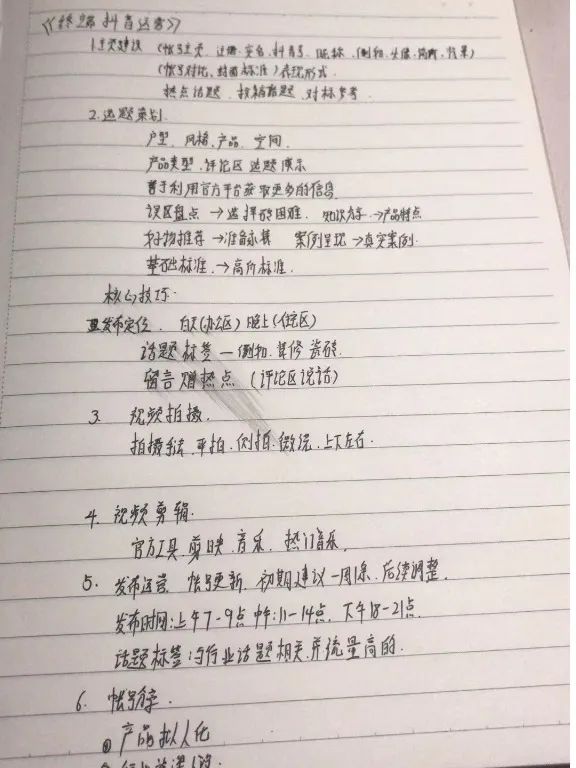 《终端抖音运营》
1.主页建议 (帐号主页、注册、实名、抖音号、昵称、例如、头像、简介、背景)
(帐号对比、封面标准) 表现形式.
热点话题、 对标参考.
2.选题策划.
户型、风格、产品、空间.
产品类型、评论区选题演示
善于利用官方平台获取更多的信息
误区盘点 → 选择的困难. 知识分享 → 产品特点
好物推荐 → 准备永赛 案例呈现 → 真实案例.
基础标准. → 高阶标准.
核心技巧.
发布定位. 白天(办公区) 晚上(住宅区)
话题标签 — 例如.装修 瓷砖.
留言蹭热点 (评论区说话)
3. 视频拍摄.
拍摄手法、平拍.侧拍.微距.上下左右.
4. 视频剪辑.
官方工具.剪映.音乐. 热门音乐.
5. 发布运营、帐号更新、初期建议一周1条.后续调整.
发布时间:上午7-9点 中午:11-14点. 下午18-21点.
话题标签:与行业话题相关.并流量高的.
6. 帐号.
① 产品拟人化
②